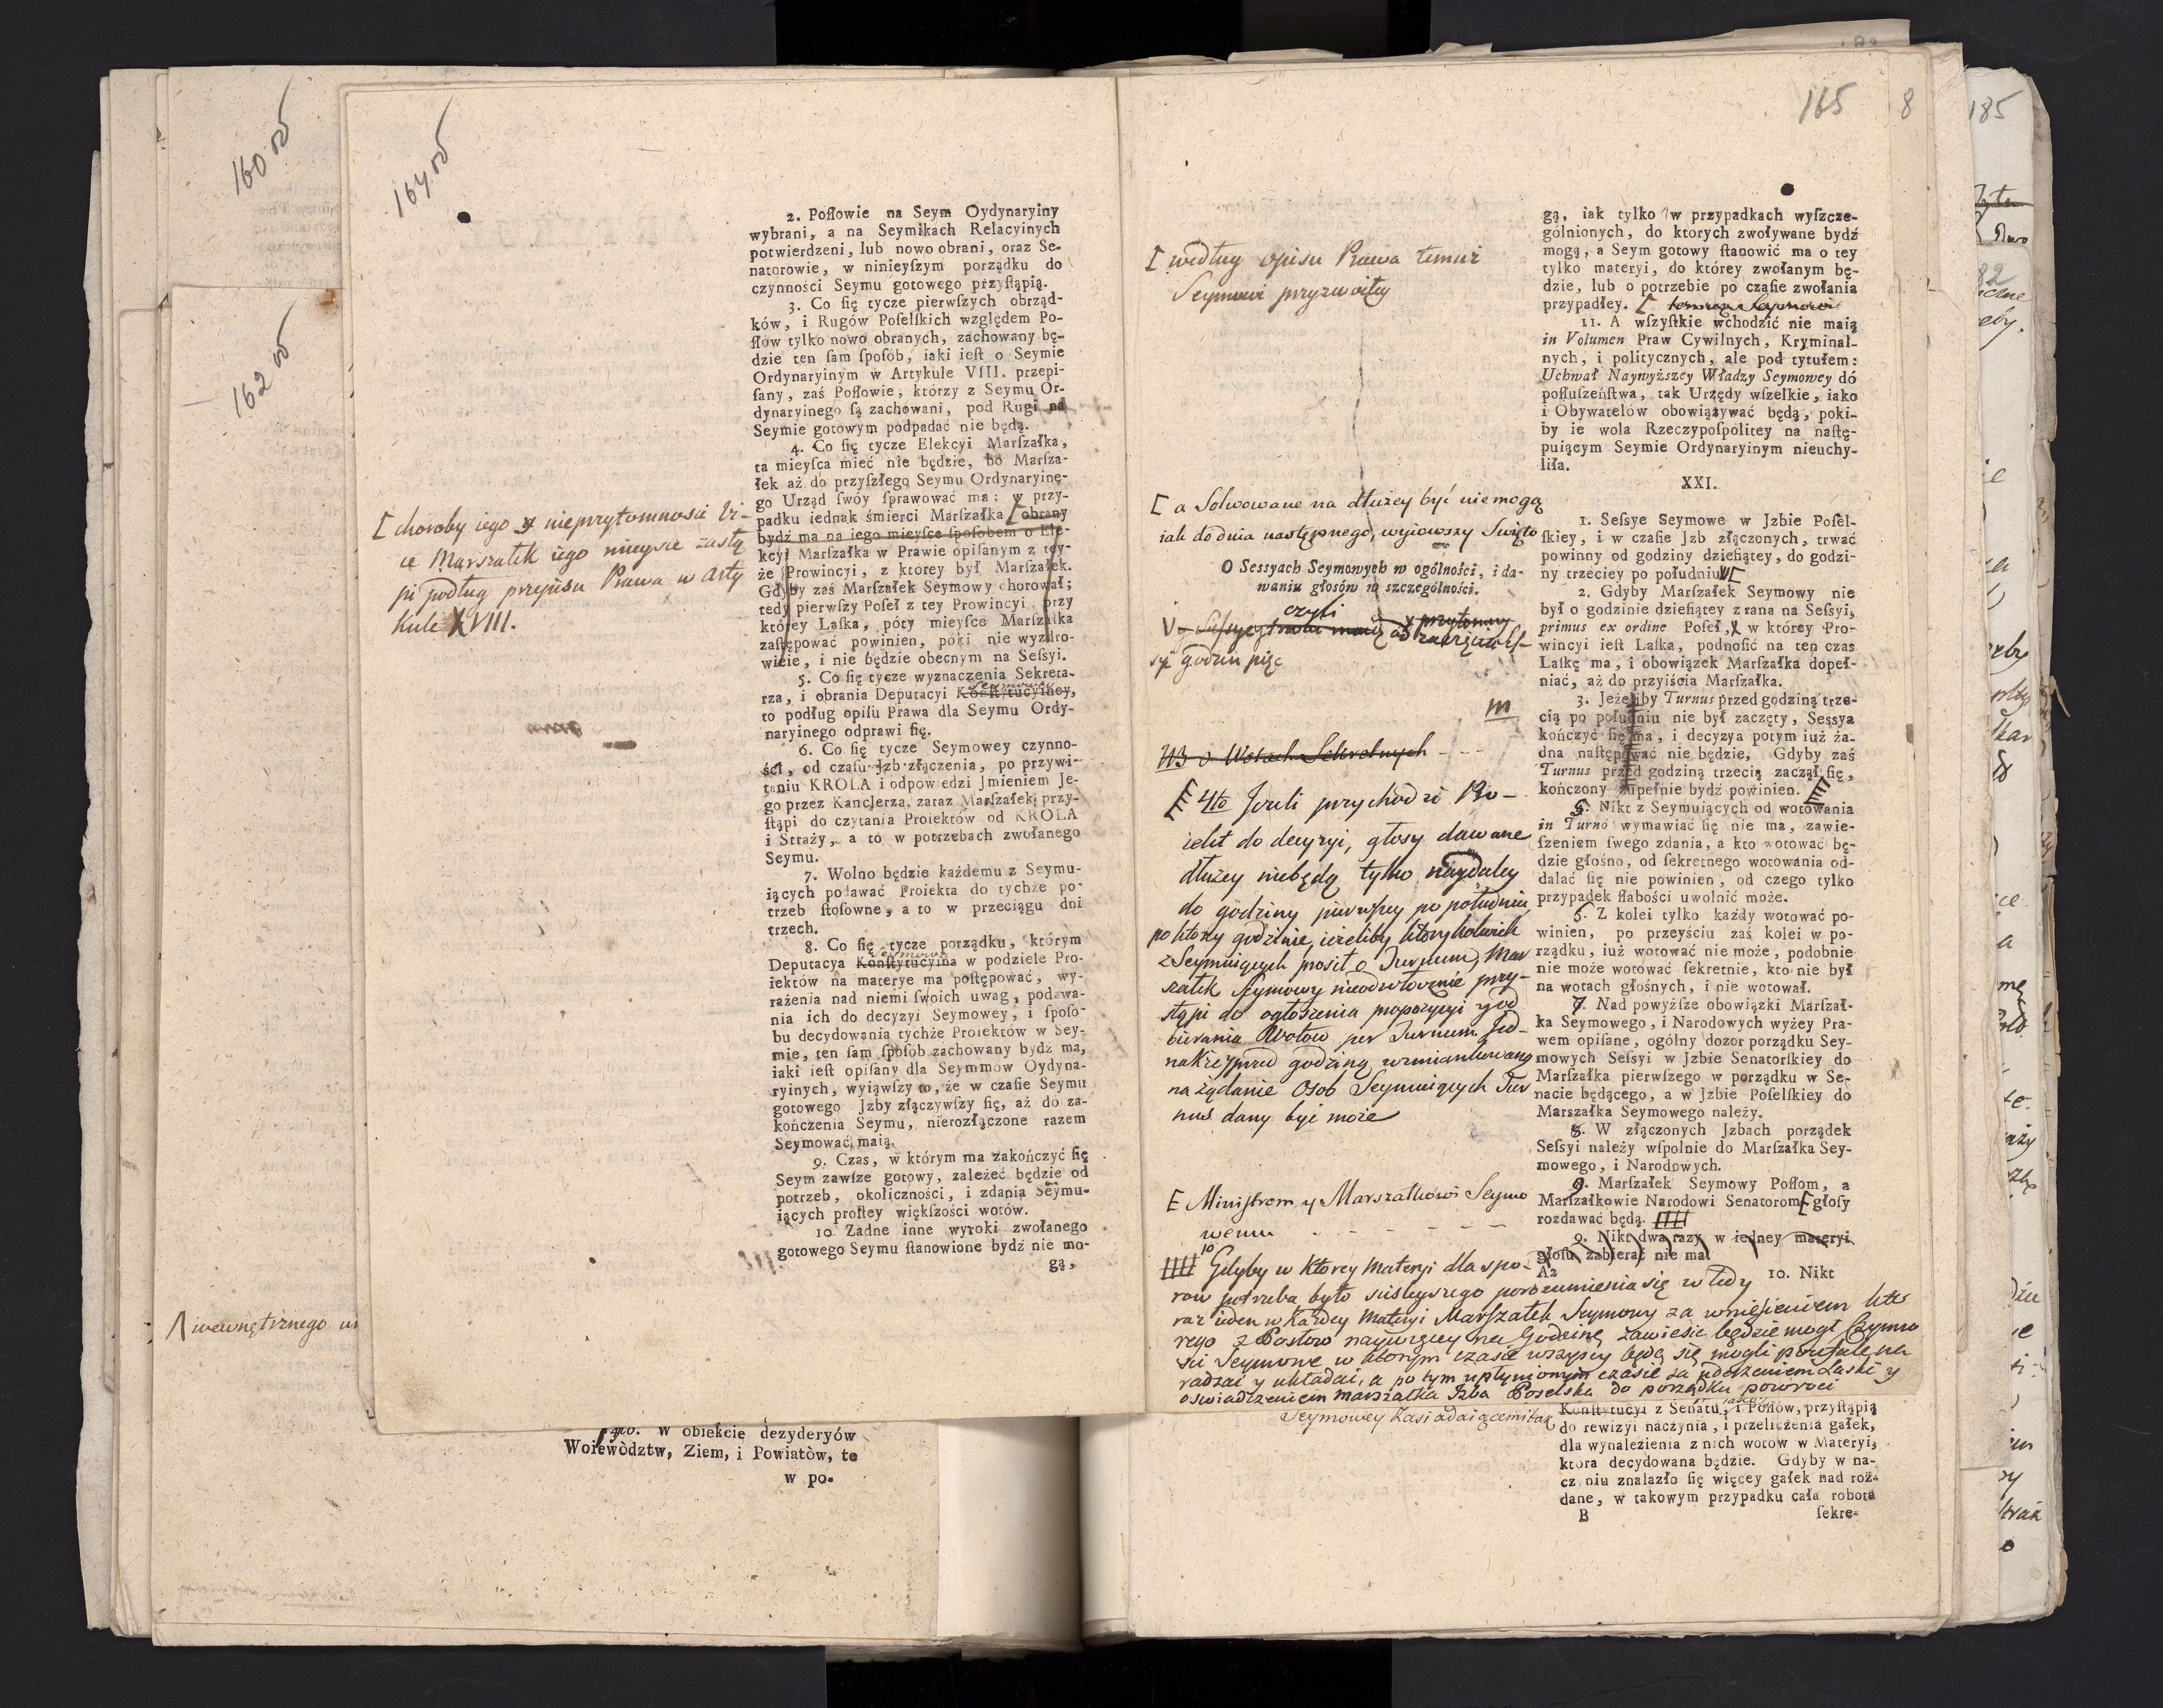 160 v
162 v
164 v
2. Poſłowie na Seym Oydynaryiny
wybrani, a na Seymikach Relacyinych
potwierdzeni, lub nowo obrani, oraz Se-
natorowie, w ninieyſzym porządku do
czynności Seymu gotowego przyſtąpią.
3. Co ſię tycze pierwſzych obrząd-
ków, i Rugów Poſelſkich względem Po-
ſłów tylko nowo obranych, zachowany bę-
dzie ten ſam ſpoſób, iaki ieſt o Seymie
Ordynaryinym w Artykule VIII. przepi-
ſany, zaś Poſłowie, którzy z Seymu Or-
dynaryinego ſą zachowani, pod Rugi na
Seymie gotowym podpadać nie będą.
4. Co ſię tycze Elekcyi Marſzałka,
ta mieyſca mieć nie będzie, bo Marſza-
łek aż do przyſzłego Seymu Ordynaryine-
go Urząd ſwóy ſprawować ma; w przy-
padku iednak śmierci Marſzałka [ obrany
bydź ma na iego mieyſce ſpoſobem o Ele-
kcyi Marſzałka w Prawie opiſanym z tey-
że Prowincyi, z którey był Marſzałek.
Gdyby zaś Marſzałek Seymowy chorował;
tedy pierwſzy Poſeł z tey Prowincyi, przy
którey Laſka, póty mieyſce Marſzałka
zaſtępować powinien, póki nie wyzdro-
wieie, i nie będzie obecnym na Seſsyi.
5. Co ſię tycze wyznaczenia Sekreta-
Seymowey
rza, i obrania Deputacyi Konſtytucyiney,
to podług opiſu Prawa dla Seymu Ordy-
naryinego odprawi ſię.
6. Co ſię tycze Seymowey czynno-
ści, od czaſu Jzb złączenia, po przywi-
taniu KROLA i odpowiedzi Jmieniem Je-
go przez Kanclerza, zaraz Marſzałek przy-
ſtąpi do czytania Proiektów od KROLA
i Straży, a to w potrzebach zwołanego
Seymu.
7. Wolno będzie każdemu z Seymu-
iących podawać Proiekta do tychże po-
trzeb ſtoſowne, a to w przeciągu dni
trzech.
8. Co ſię tycze porządku, którym
Seymowa
Deputacya Konſtytucyina w podziele Pro-
iektów na materye ma poſtępować, wy-
rażenia nad niemi ſwoich uwag, podawa-
nia ich do decyzyi Seymowey, i ſpoſo-
bu decydowania tychże Proiektów w Sey-
mie, ten ſam ſpoſób zachowany bydź ma,
iaki ieſt opiſany dla Seymmow Oydyna-
ryinych, wyiąwſzy to, że w czaſie Seymu
gotowego Jzby złączywſzy ſię, aż do za-
kończenia Seymu, nierozłączone razem
Seymować maią.
9. Czas, w którym ma zakończyć ſię
Seym zawſze gotowy, zależeć będzie od
potrzeb, okoliczności, i zdania Seymu-
iących proſtey więkſzości wotów.
10. Zadne inne wyroki zwołanego
gotowego Seymu ſtanowione bydź nie mo-
gą,
[ choroby iego y nieprzytomnosci Vi-
ce Marszałek iego mieysce zastą
pi podług przepisu Prawa w Arty
kule XVIII.
/ wewnętrznego
4to. W obiekcie dezyderyów
Woiewòdztw, Ziem, i Powiatów, te
w po-
165
8
185
[ według opisu Prawa temuż
Seymowi przyzwoitey
[ a Solwowane na dłużey być nie mogą
iak do dnia następnego, wyiąwszy Swięto
O Sessyach Seymowych w ogólności, i da-
waniu głosów w szczególności.
godzin pięć
NB o Wotach Sekretnych - - -
4to Jeżeli przychodzi Pro-
iekt do decyzyi, głosy dawane
dłużey niebędą tylko naydaley
do godziny pierwszey po południu
po ktorey godzinie, ieżeliby ktorykolwiek
z Seymuiących prosił o Turnum, Mar
szałek Seymowy nieodwłocznie przy-
stąpi do ogłoszenia propozycyi y od
bierania Wotow per Turnum. Jed-
nakże przed godziną wzmiankowaną
na żądanie Osob Seymuiących Tur
nus dany być może
[ Ministrom y Marszałkowi Seymo
wemu - - - - - -
10
Gdyby w ktorey materyi dla spo-
row potrzeba było sciśleyszego porozumienia się w tedy
raz ieden w każdey materyi Marszałek Seymowy za wniesieniem kto
rego z Posłow naywięcey na Godzinę zawiesić będzie mogł Czynno
ści Seymowe w ktorym czasie wszyscy będą się mogli poufale na
radzać y układać, a po tym upłynionym czasie za uderzeniem Laski y
oswiadczeniem marszałka Izba Poselska do porządku powroci
gą, iak tylko w przypadkach wyſzcze-
gólnionych, do ktorych zwoływane bydź
mogą, a Seym gotowy ſtanowić ma o tey
tylko materyi, do którey zwołanym bę-
dzie, lub o potrzebie po czaſie zwołania
przypadłey. [ temuż Seymowi
11. A wſzyſtkie wchodzić nie maią
in Volumen Praw Cywilnych, Kryminal-
nych, i politycznych, ale pod tytułem:
Uchwał Naywyższey Władzy Seymowey do
poſłuſzeńſtwa, tak Urzędy wſzelkie, iako
i Obywatelów obowiązywać będą, poki-
by ie wola Rzeczypoſpolitey na naſtę-
puiącym Seymie Ordynaryinym nieuchy-
liła.
XXI.
1. Seſsye Seymowe w Jzbie Poſel-
ſkiey, i w czaſie Jzb złączonych, trwać
powinny od godziny dzieſiątey, do godzi-
ny trzeciey po południu [
2. Gdyby Marſzałek Seymowy nie
był o godzinie dzieſiątey z rana na Seſsyi,
primus ex ordine Poſeł, w którey Pro-
wincyi ieſt Laſka, podnoſić na ten czas
Laſkę ma, i obowiązek Marſzałka dopeł-
niać, aż do przyiścia Marſzałka.
3. Jeżeliby Turnus przed godziną trze-
cią po południu nie był zaczęty, Sessya
kończyć ſię ma, i decyzya potym iuż ża-
dna naſtępować nie będzie, Gdyby zaś
Turnus przed godziną trzecią zaczął ſię,
kończony zupełnie bydź powinien.
5. Nikt z Seymuiących od wotowania
in Turno wymawiać ſię nie ma, zawie-
ſzeniem ſwego zdania, a kto wotować bę-
dzie głośno, od ſekretnego wotowania od-
dalać ſię nie powinien, od czego tylko
przypadek ſłabości uwolnić może.
6. Z kolei tylko każdy wotować po-
winien, po przeyściu zaś kolei w po-
rządku, iuż wotować nie może, podobnie
nie może wotować ſekretnie, kto nie był
na wotach głośnych, i nie wotował.
7. Nad powyżſze obowiązki Marſzał-
ka Seymowego, i Narodowych wyżey Pra-
wem opiſane, ogólny dozor porządku Sey-
mowych Seſsyi w Jzbie Senatorſkiey do
Marſzałka pierwſzego w porządku w Se-
nacie będącego, a w Jzbie Poſelſkiey do
Marszałka Seymowego należy.
8. W złączonych Jzbach porządek
Seſsyi należy wſpolnie do Marſzałka Sey-
mowego, i Narodowych.
9. Marſzałek Seymowy Poſłom, a
Marſzałkowie Narodowi Senatorom [ głoſy
rozdawać będą.
9. Nikt dwa razy w iedney materyi
głoſu zabierać nie ma.
A2
10. Nikt
Konſtytucyi z Senatu, i Poſłów, przyſtąpią
do rewizyi naczynia, i przeliczenia gałek,
dla wynalezienia z nich wotow w Materyi,
ktora decydowana będzie. Gdyby w na-
czyniu znalazło ſię więcey gałek nad roz-
dane, w takowym przypadku cała robota
B
ſekre-